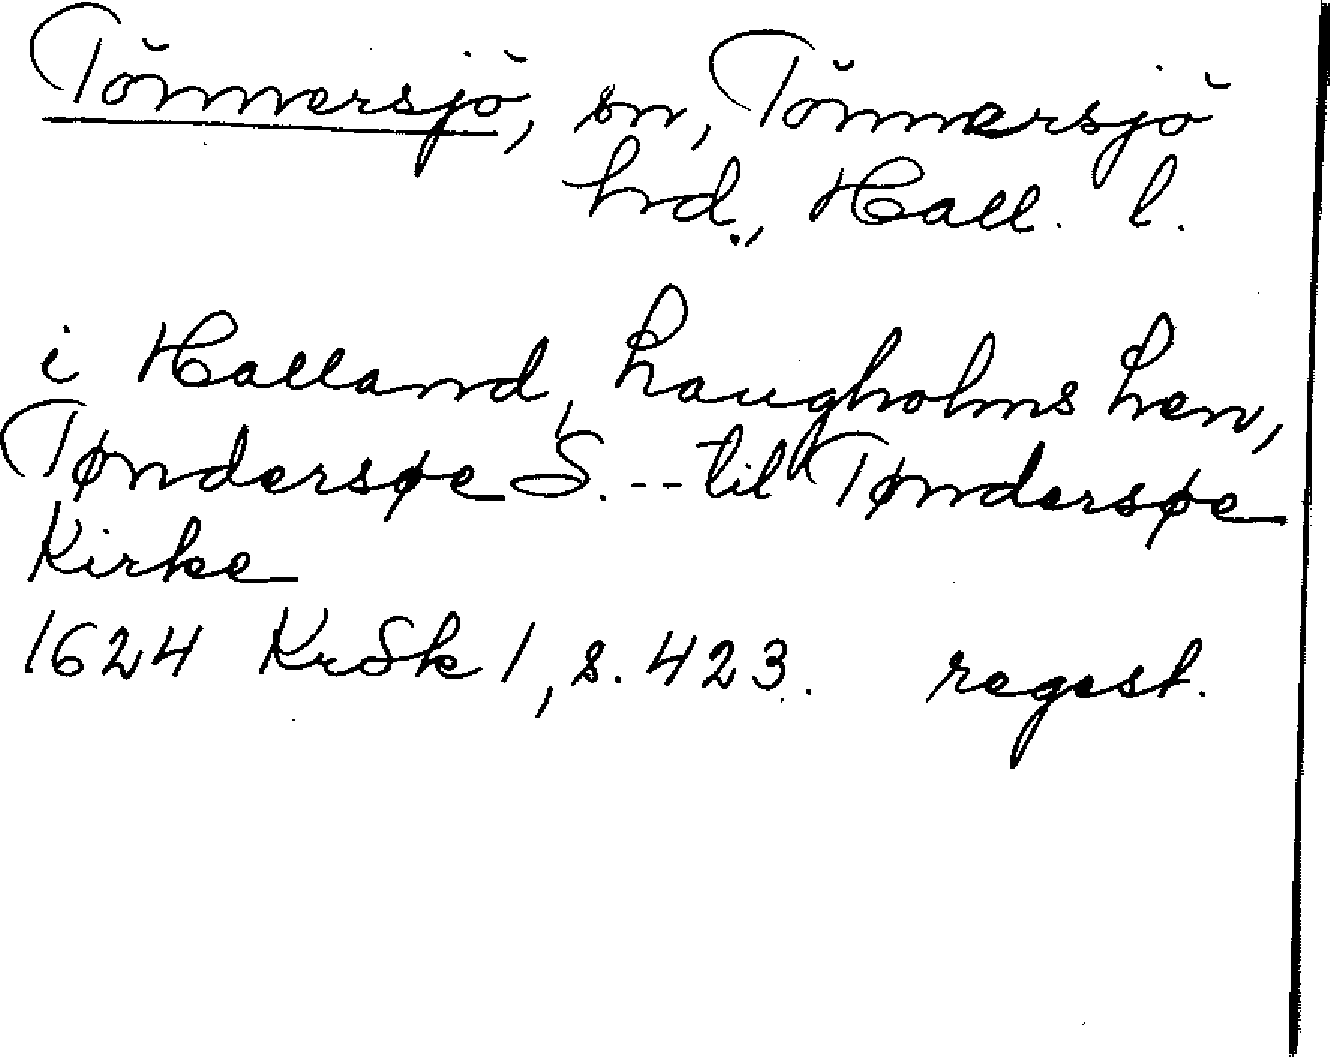 Tönnersjö, sn, Tönnersjö
hd., Hall. l.
i Halland, Laugholms Len,
Tøndersøe S. --- til Tøndersøe
Kirke
1624 KrSk 1, s. 423. regest.